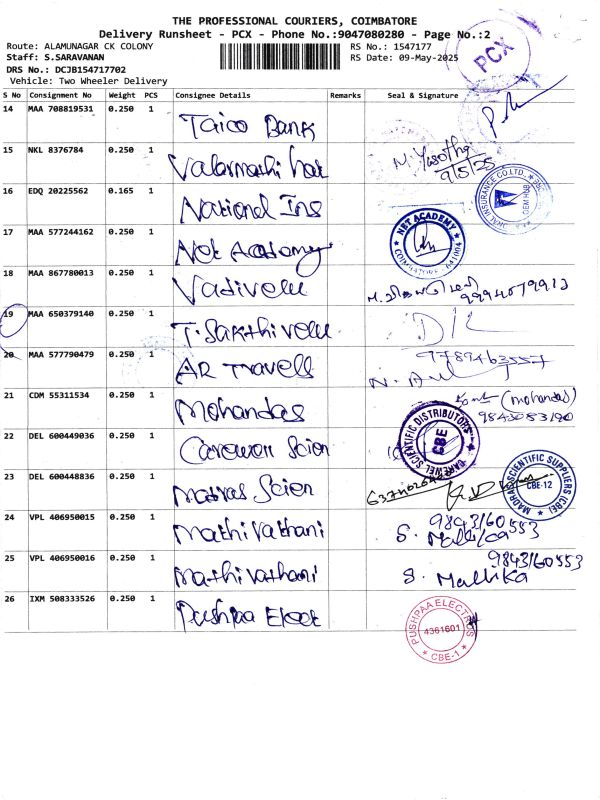 THE PROFESSIONAL COURIERS, COIMBATORE
Delivery Runsheet - PCX - Phone No.:9047080280 - Page No.:2
Route: ALAMUNAGAR CK COLONY
RS No.: 1547177
Staff: S.SARAVANAN
RS Date: 09-May-2025
DRS No.: DCJB154717702
Vehicle: Two Wheeler Delivery
PCX
S No Consignment No Weight PCS Consignee Details Remarks Seal & Signature
14 MAA 708819531 0.250 1 Taico Bank
15 NKL 8376784 0.250 1 Valarmathi N. Yasotha
9/5/25
16 EDQ 20225562 0.165 1 National Ins
17 MAA 577244162 0.250 1 Net Academy
NBT ACADEMY
COIMBATORE - 641004
18 MAA 867780013 0.250 1 Vadivelu
9994079913
19 MAA 650379140 0.250 1 T. Sakthivelu
20 MAA 577790479 0.250 1 AR Travels
9789463557
21 CDM 55311534 0.250 1 Mohandas (Mohandas)
9843083190
22 DEL 600449036 0.250 1 Carewell Scien
CAREWEL SCIENTIFIC DISTRIBUTORS
CBE
23 DEL 600448836 0.250 1 Madras Scien
MADRAS SCIENTIFIC SUPPLIERS (CBE)
CBE-12
24 VPL 406950015 0.250 1 Mathivathani
9843160553
S. Mallika
25 VPL 406950016 0.250 1 Mathivathani
9843160553
S. Mallika
26 IXM 508333526 0.250 1 Pushpaa Elect
PUSHPAA ELECTROS
4361601
* CBE-1 *